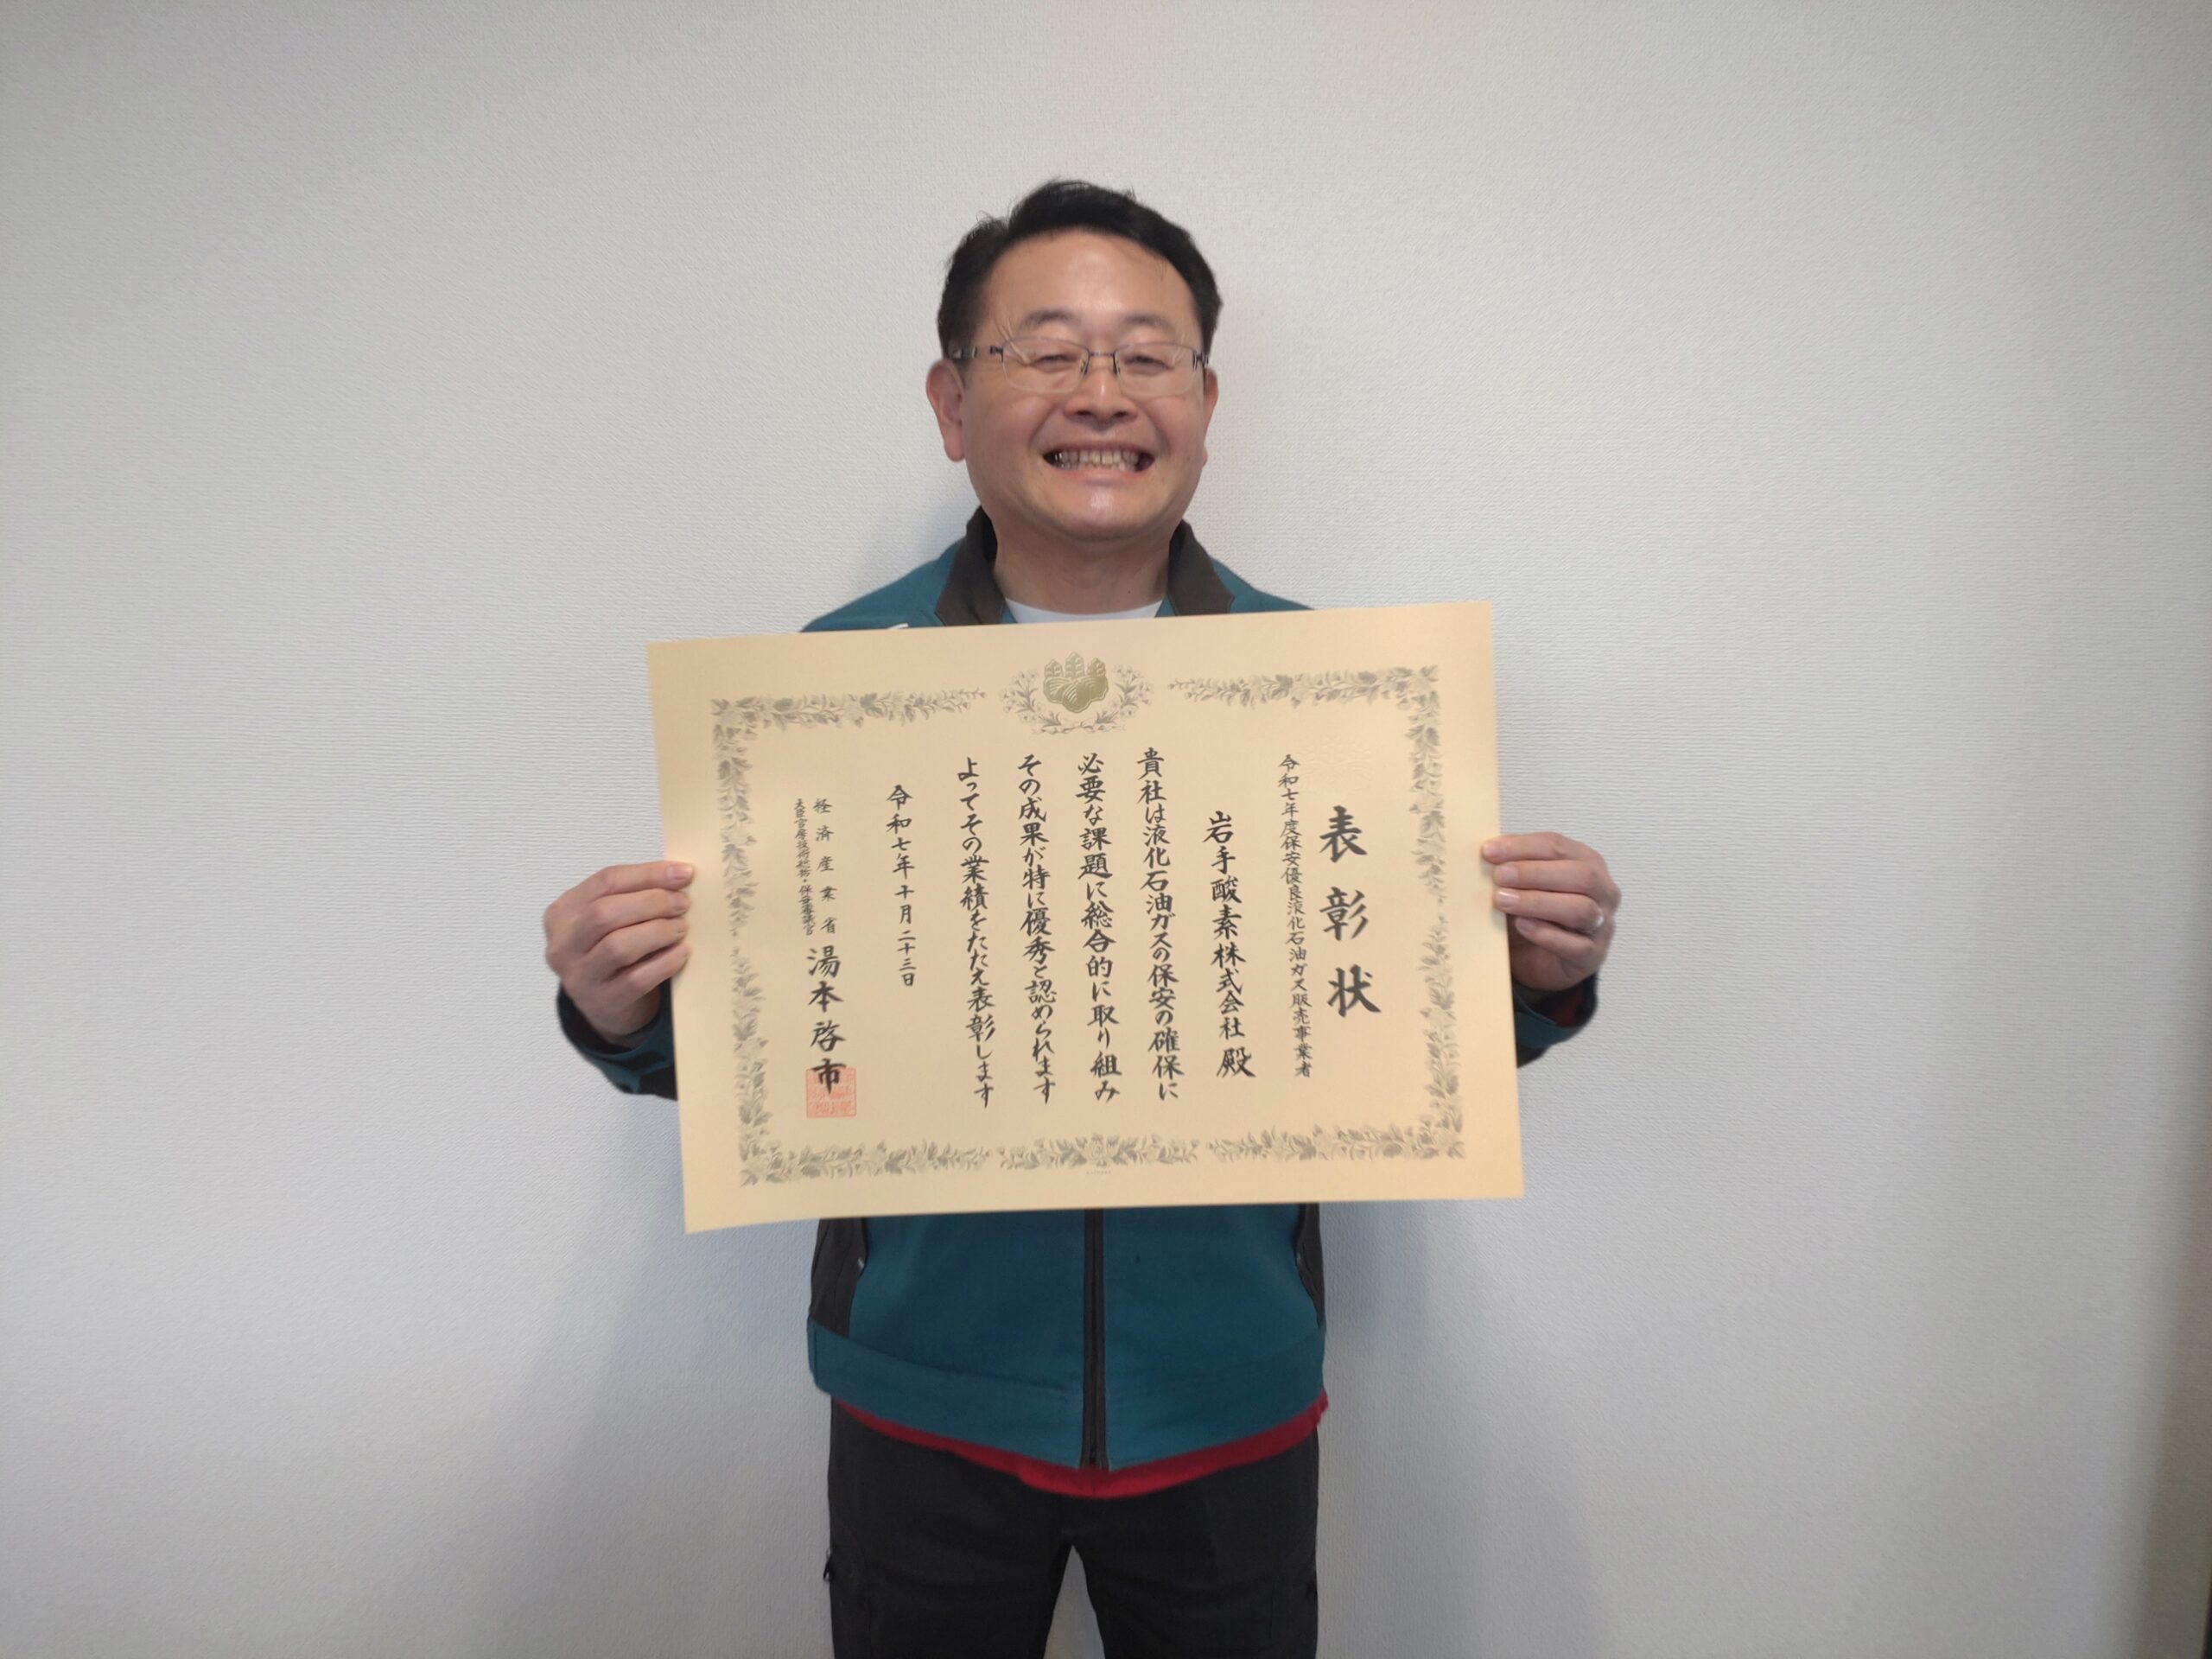 表彰状
令和七年度保安優良液化石油ガス販売事業者
岩手酸素株式会社 殿
貴社は液化石油ガスの保安の確保に
必要な課題に総合的に取り組み
その成果が特に優秀と認められます
よってその業績をたたえ表彰します
令和七年十月二十三日
経済産業省
大臣官房技術総括・保安審議官
湯本啓市